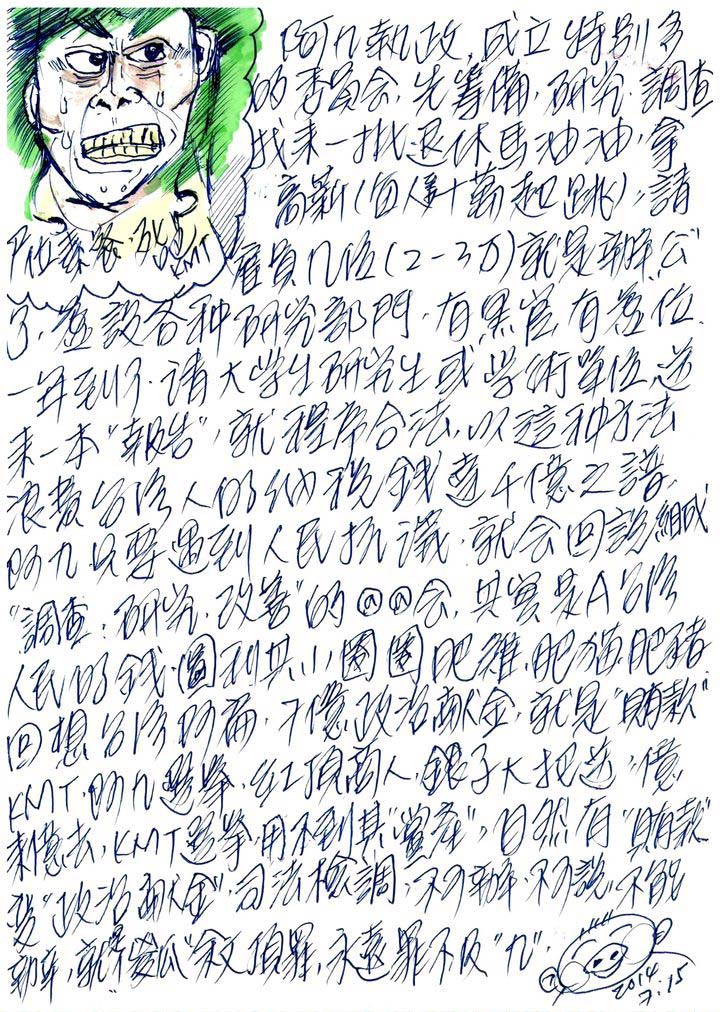 阿九執政,成立特別多
的委員会,先籌備,研究,調查
找來一批退休馬油油,拿
高薪(每人十萬起跳),請
KMT
雇員几位(2-3万)就是辦公
了,並設各种研究部門,有黑官,有位
一年到了,請大学生研究生或学術單位,送
來一本"報告",就程序合法,以這种方法
浪費台湾人的納稅錢達千億之譜,
阿九只要遇到人民抗議,就会回說組成
"調查,研究,改善"的@@会,其實是A台湾
人民的錢,圖利其小圈圈肥雞,肥猫,肥豬
回想台湾阿扁,才億政治献金,就是"賄款"
KMT,阿九選舉,紅頂商人,銀子大把送,億
來億去,KMT選舉用不到其"黨產",自然有"賄款"
變"政治献金",司法檢調,不可辦,不可說,不能
辦,就"傻瓜"頂罪,永遠罪不及"九".
2014
7.15